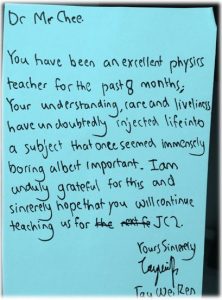 Dr Mr Chee.
You have been an excellent physics
teacher for the past 8 months;
Your understanding, care and liveliness
have undoubtedly injected life into
a subject that once seemed immensely
boring albeit important. I am
unduly grateful for this and
sincerely hope that you will continue
teaching us for the JC2.
Yours Sincerely
Tay Wei Ren